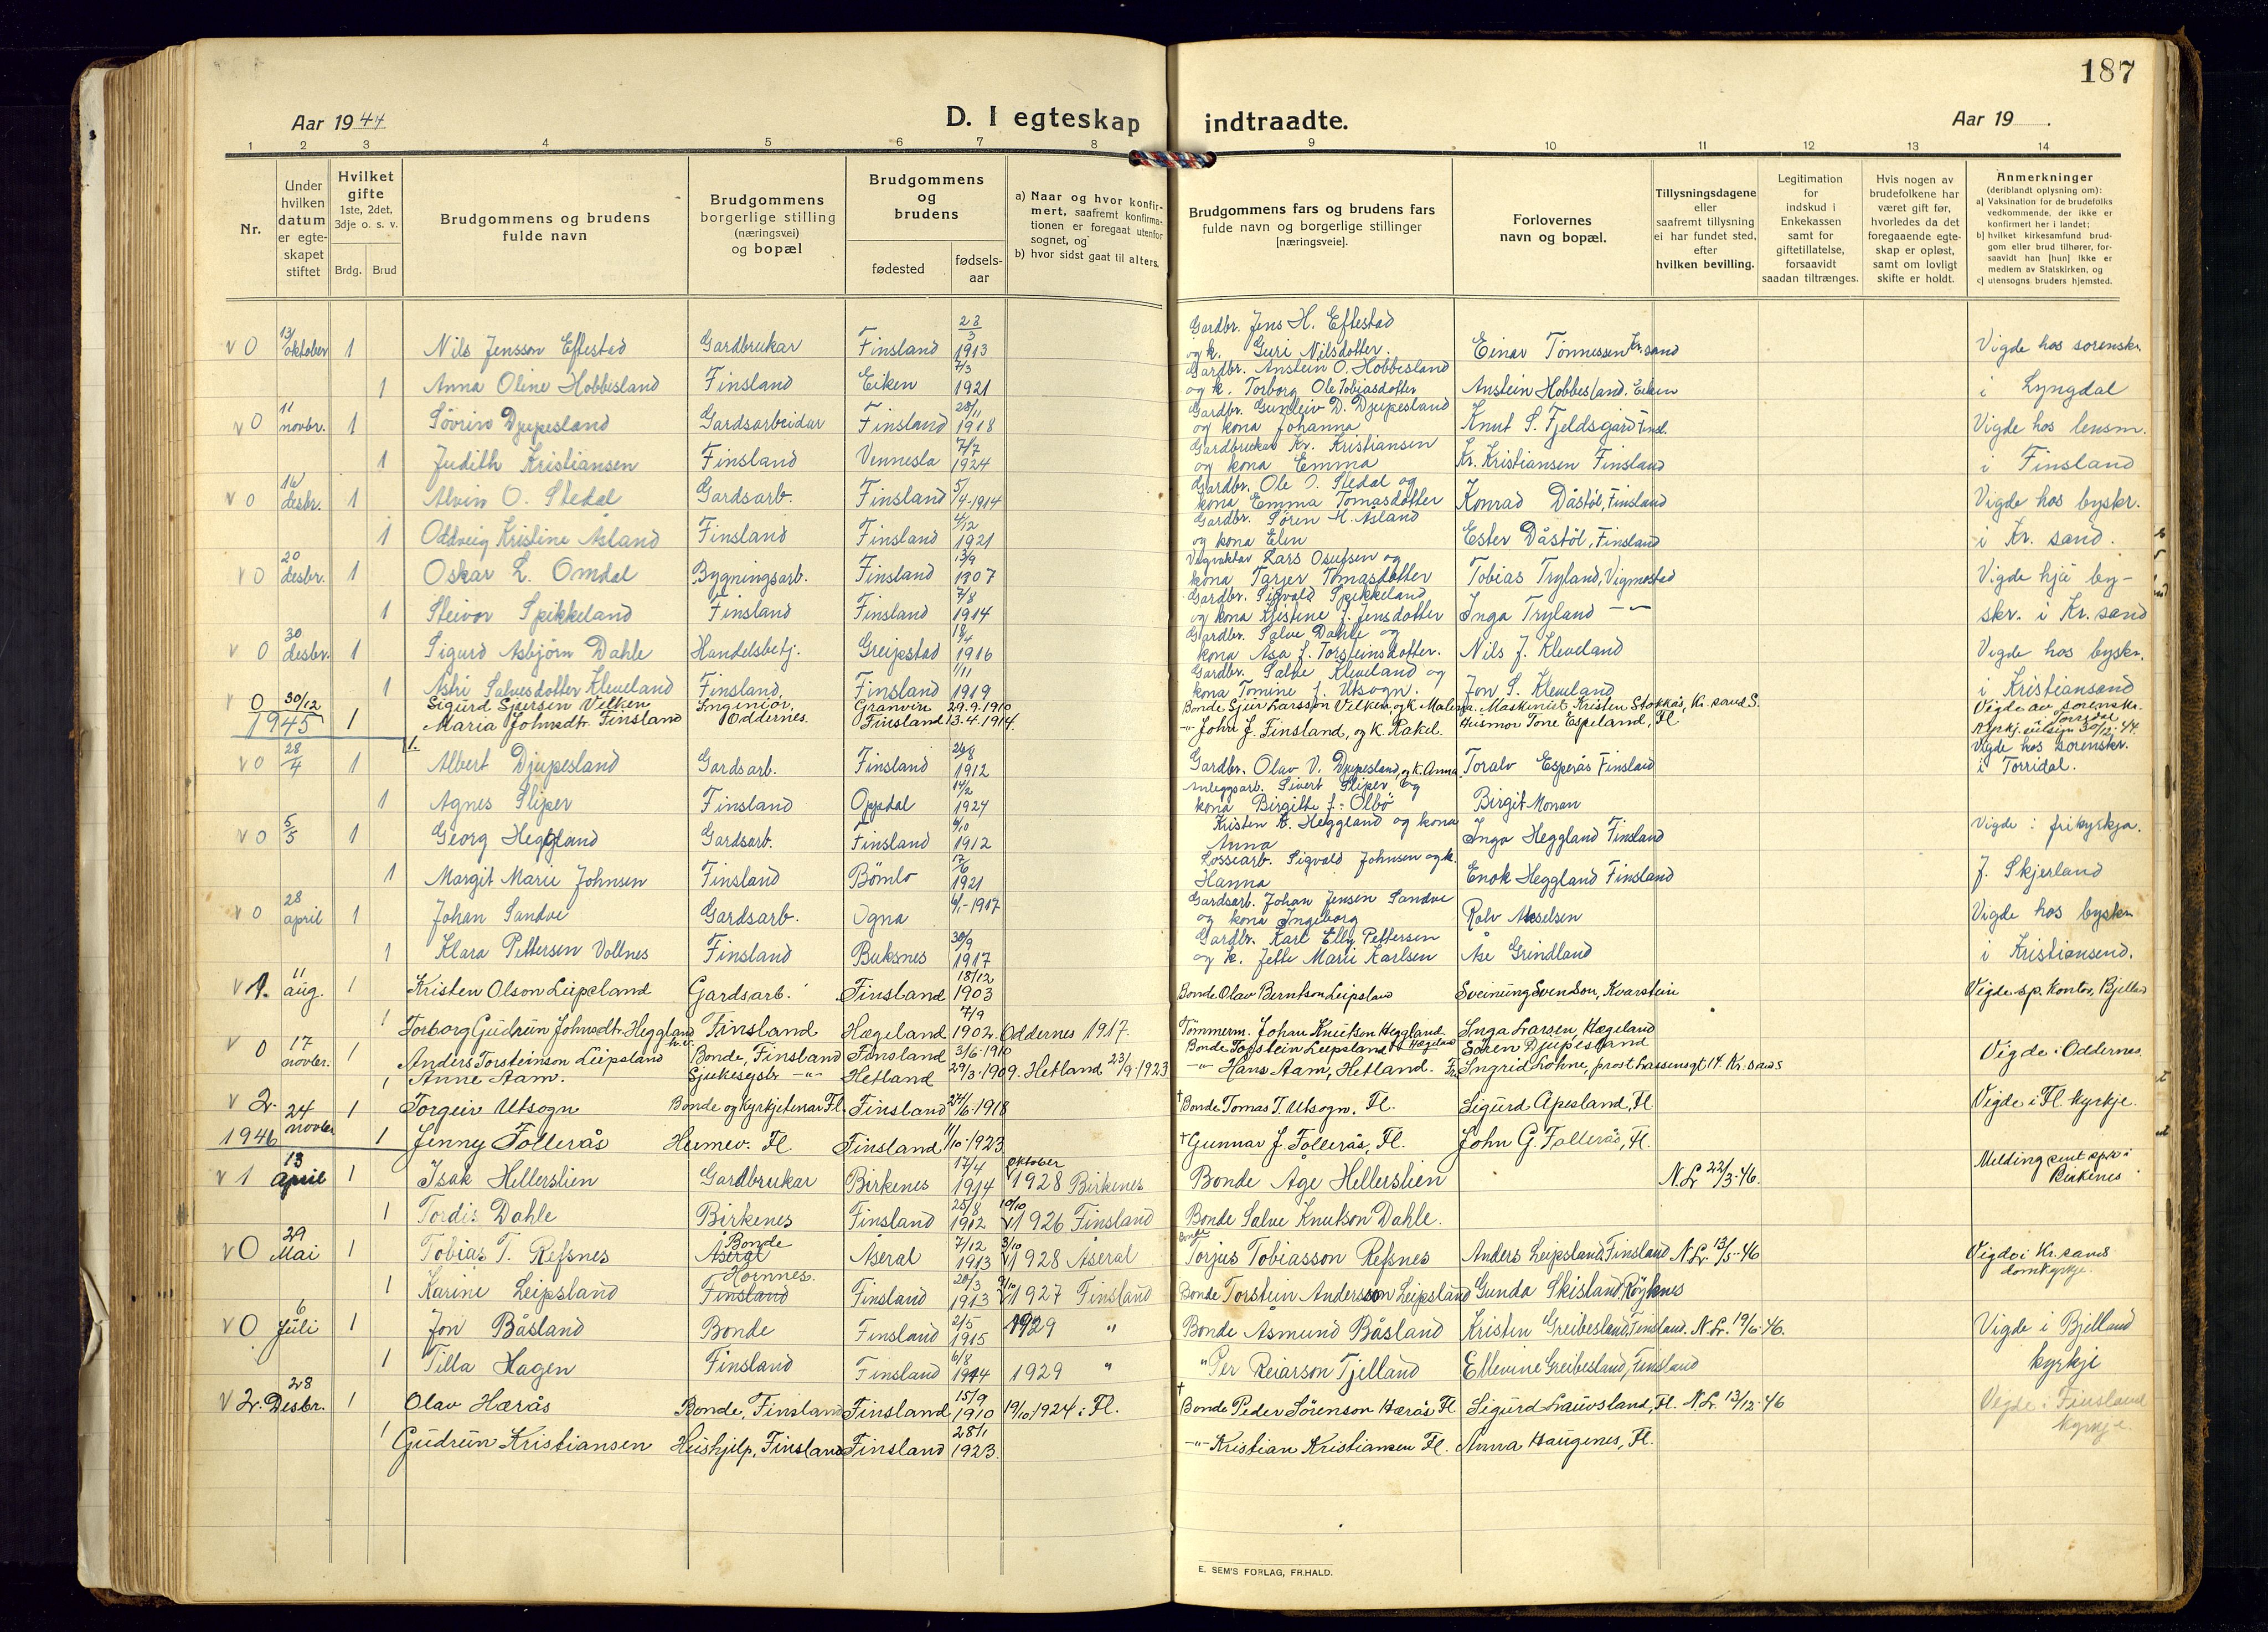 187
Aar 1944
D. I egteskap indtraadte.
Aar 19 .
1 2 3 4 5 6 7 8 9 10 11 12 13 14
Nr.
Under hvilken datum er egteskapet stiftet
Hvilket gifte 1ste, 2det, 3dje o. s. v.
Brdg. Brud
Brudgommens og brudens fulde navn
Brudgommens borgerlige stilling (næringsvei) og bopæl
Brudgommens og brudens
fødested
fødselsaar
a) Naar og hvor konfirmert, saafremt konfirmationen er foregaat utenfor sognet, og
b) hvor sidst gaat til alters.
Brudgommens fars og brudens fars fulde navn og borgerlige stillinger [næringsveie].
Forlovernes navn og bopæl.
Tillysningsdagene eller saafremt tillysning ei har fundet sted, efter hvilken bevilling.
Legitimation for indskud i Enkekassen samt for giftetillatelse, forsaavidt saadan tiltrænges.
Hvis nogen av brudefolkene har været gift før, hvorledes da det foregaaende egteskap er opløst, samt om lovligt skifte er holdt.
Anmerkninger (deriblandt oplysning om):
a] Vaksination for de brudefolks vedkommende, der ikke er konfirmert her i landet;
b] hvilket kirkesamfund brudgom eller brud tilhører, forsaavidt han [hun] ikke er medlem av Statskirken, og
c] utensogns bruders hjemsted.
v 0 13/ oktober 1 Nils Jensson Eftestad Gardbrukar Finsland 23/3 1913 Gardbr. Jens H. Eftestad og k. Guri Nilsdotter. Einar Tønnessen Kr.sand Vigde hos sorenskr.
1 Anna Oline Hobbesland Finsland Eiken 7/3 1921 Gardbr. Anstein O. Hobbesland og k. Torborg Ole Tobiasdotter Anstein Hobbesland. Eiken i Lyngdal
v 0 11 novbr. 1 Søvrin Djupesland Gardsarbeidar Finsland 28/11 1918 Gardbr. Gunleiv D. Djupesland og kona Johanna Knut S. Fjeldsgård Finsl. Vigde hos lensm.
1 Judith Kristiansen Finsland Vennesla 7/7 1924 Gardbrukar Kr. Kristiansen og kona Emma Kr. Kristiansen Finsland i Finsland
v 0 16/ desbr. 1 Alvin O. Stedal Gardsarb. Finsland 5/4-1914 Gardbr. Ole O. Stedal og kona Emma Tomasdotter Konrad Dåstøl, Finsland Vigde hos byskr.
1 Oddveig Kristine Åsland Finsland Finsland 4/12 1921 Gardbr. Søren H. Åsland og kona Elen Ester Dåstøl, Finsland i Kr. sand.
v 0 20 desbr. 1 Oskar L. Omdal Bygningsarb. Finsland 13/9 1907 Vegvaktar Lars Osufsen og kona Tarjer Tomasdotter Tobias Tryland, Vigmostad Vigde hjå by-
1 Steivor Spikkeland Finsland Finsland 7/8 1914 Gardbr. Sigvald Spikkeland og kona Kristine f. Jensdotter Inga Tryland —"— skr. i Kr. sand
v 0 30 desbr. 1 Sigurd Asbjørn Dahle Handelsbetj. Greipstad 18/4 1916 Gardbr. Salve Dahle og kona Åsa f. Torsteinsdotter. Nils J. Kleveland Vigde hos byskr.
1 Astri Salvesdotter Kleveland Finsland, Finsland 1/11 1919 Gardbr. Salve Kleveland og kona Tomine f. Utsogn. Jon S. Kleveland i Kristiansand
v 0 30/12 Sigurd Sjursen Velken Ingeniør, Oddernes. Granvin 29.9.1910 Bonde Sjur Larsson Velken, og k Malena. Maskinist Kristen Stokkås, Kr.sand S. Vigde av sorenskr. Torridal
1945 1 Maria Johnsdtr. Finsland Finsland 13.4.1914. —"— John J. Finsland, og k. Rakel. Husmor Tone Espeland, Fl Kyrkj. vilsign 30/12-44.
v 0 28/4 1 Albert Djupesland Gardsarb. Finsland 26/8 1912 Gardbr. Olav V. Djupesland, og k. Anna. Toralv Esperås Finsland Vigde hos sorenskr. i Torridal.
1 Agnes Sliper Finsland Oppdal 14/2 1924 Anleggsarb. Sivert Sliper og kona Birgitte f. Olbø Birgit Monan
v 0 5/5 1 Georg Heggland Gardsarb. Finsland 6/10 1912 Kristen K. Heggland og kona Anna Inga Heggland Finsland Vigde i frikyrkja.
1 Margit Marie Johnsen Finsland Bømlo 17/6 1921 Lossearb. Sigvald Johnsen og k. Hanna Enok Heggland Finsland J. Skjerland
v 0 28 april 1 Johan Sandve Gardsarb. Ogna 6/1-1917 Gardsarb. Johan Jensen Sandve og kona Ingeborg Rolv Akselsen Vigde hos byskr.
1 Klara Pettersen Vollnes Finsland Buksnes 30/9 1917 Gardbr. Karl Elly Pettersen og k. Jette Marie Karlsen Åse Grindland i Kristiansand.
v 1. 11 aug. 1 Kristen Olson Leipsland Gardsarb. Finsland 18/12 1903 Bonde Olav Berntson Leipsland Sveinung Svendson, Kvarstein Vigde sp. kontor, Bjelland
1 Torborg Gudrun Johnsdtr. Heggland Finsland Hægeland 7/9 1902. Oddernes 1917. Tømmerm. Johan Knutson Heggland. Hægeland Inga Larsen, Hægeland
v 0 17 novbr. 1 Anders Torsteinson Leipsland Bonde, Finsland Finsland 3/6-1910 Bonde Torstein Leipsland Søren Djupesland Vigde i Oddernes.
1 Anne Aam. Sjukesyster —"— Hetland 29/3-1909. Hetland 23/9-1923 —"— Hans Aam, Hetland. Frk Ingrid Lohne, prost Lassensgt 14. Kr.sands
v 2. 24 novbr 1 Torgeir Utsogn Bonde og kyrkjetenar Fl. Finsland 24/6-1918 † Bonde Tomas T. Utsogn. Fl. Sigurd Apesland, Fl. Vigde i Fl. kyrkje.
1946 1 Jenny Follerås Heimev. Fl. Finsland 11/10-1923 † Gunnar J. Follerås, Fl. John G. Follerås, Fl.
v 1 13 April 1 Isak Hellerslien Gardbrukar Birkenes 17/4 1914 oktober v 1928 Birkenes Bonde Åge Hellerslien N.L 22/3-46. Melding sent spr. i Birkenes
1 Tordis Dahle Birkenes Finsland 25/8 1912 10/10 v 1926 Finsland Bonde Salve Knutson Dahle.
v 0 29 Mai 1 Tobias T. Refsnes Bonde Åseral Åseral 7/12 1913 3/10 v 1928 Åseral Bonde Torjus Tobiasson Refsnes Anders Leipsland, Finsland N.L. 13/5-46 Vigde i Kr.sands domkyrkje.
1 Karine Leipsland Hornnes. Finsland Finsland 20/3 1913 9/10 v 1927 Finsland Bonde Torstein Andersson Leipsland Gunda Skisland, Røyknes
v 0 6 Juli 1 Jon Båsland Bonde Finsland 2/5 1915 1929 " Bonde Åsmund Båsland Kristen Greibesland, Finsland. N.L. 19/6-46. Vigde i Bjelland
1 Tilla Hagen Finsland Finsland 6/8 1914 1929 " " Per Reiarson Tjelland Ellevine Greibesland, Finsland kyrkje
v 2. 28 Desbr. 1 Olav Hærås Bonde, Finsland Finsland 15/9 1910 19/10 1924 i Fl. † Bonde Peder Sørenson Hærås Fl Sigurd Lauvsland, Fl. N.L. 13/12-46 Vigde i Finsland kyrkje
1 Gudrun Kristiansen Hushjelp, Finsland Finsland 28/1 1923. —"— Kristian Kristiansen Fl. Anna Haugenes, Fl.
E. SEM'S FORLAG, FR.HALD.